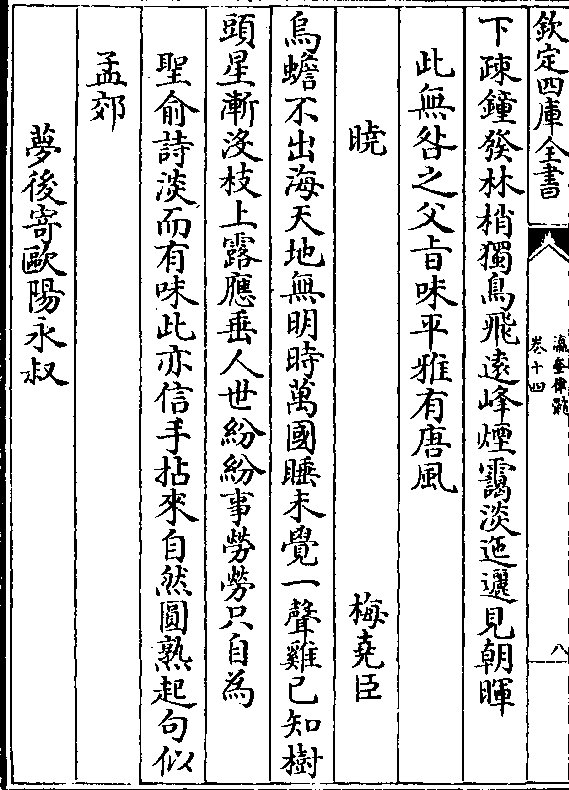 欽定四庫全書
瀛奎律髓
卷十四
八
下疎鐘發林梢獨鳥飛遠峰煙靄淡迤邐見朝暉
此無咎之父旨味平雅有唐風
曉
梅堯臣
烏蟾不出海天地無明時萬國睡未覺一聲雞已知樹
頭星漸沒枝上露應垂人世紛紛事勞勞只自為
聖俞詩淡而有味此亦信手拈來自然圓熟起句似
孟郊
夢後寄歐陽永叔